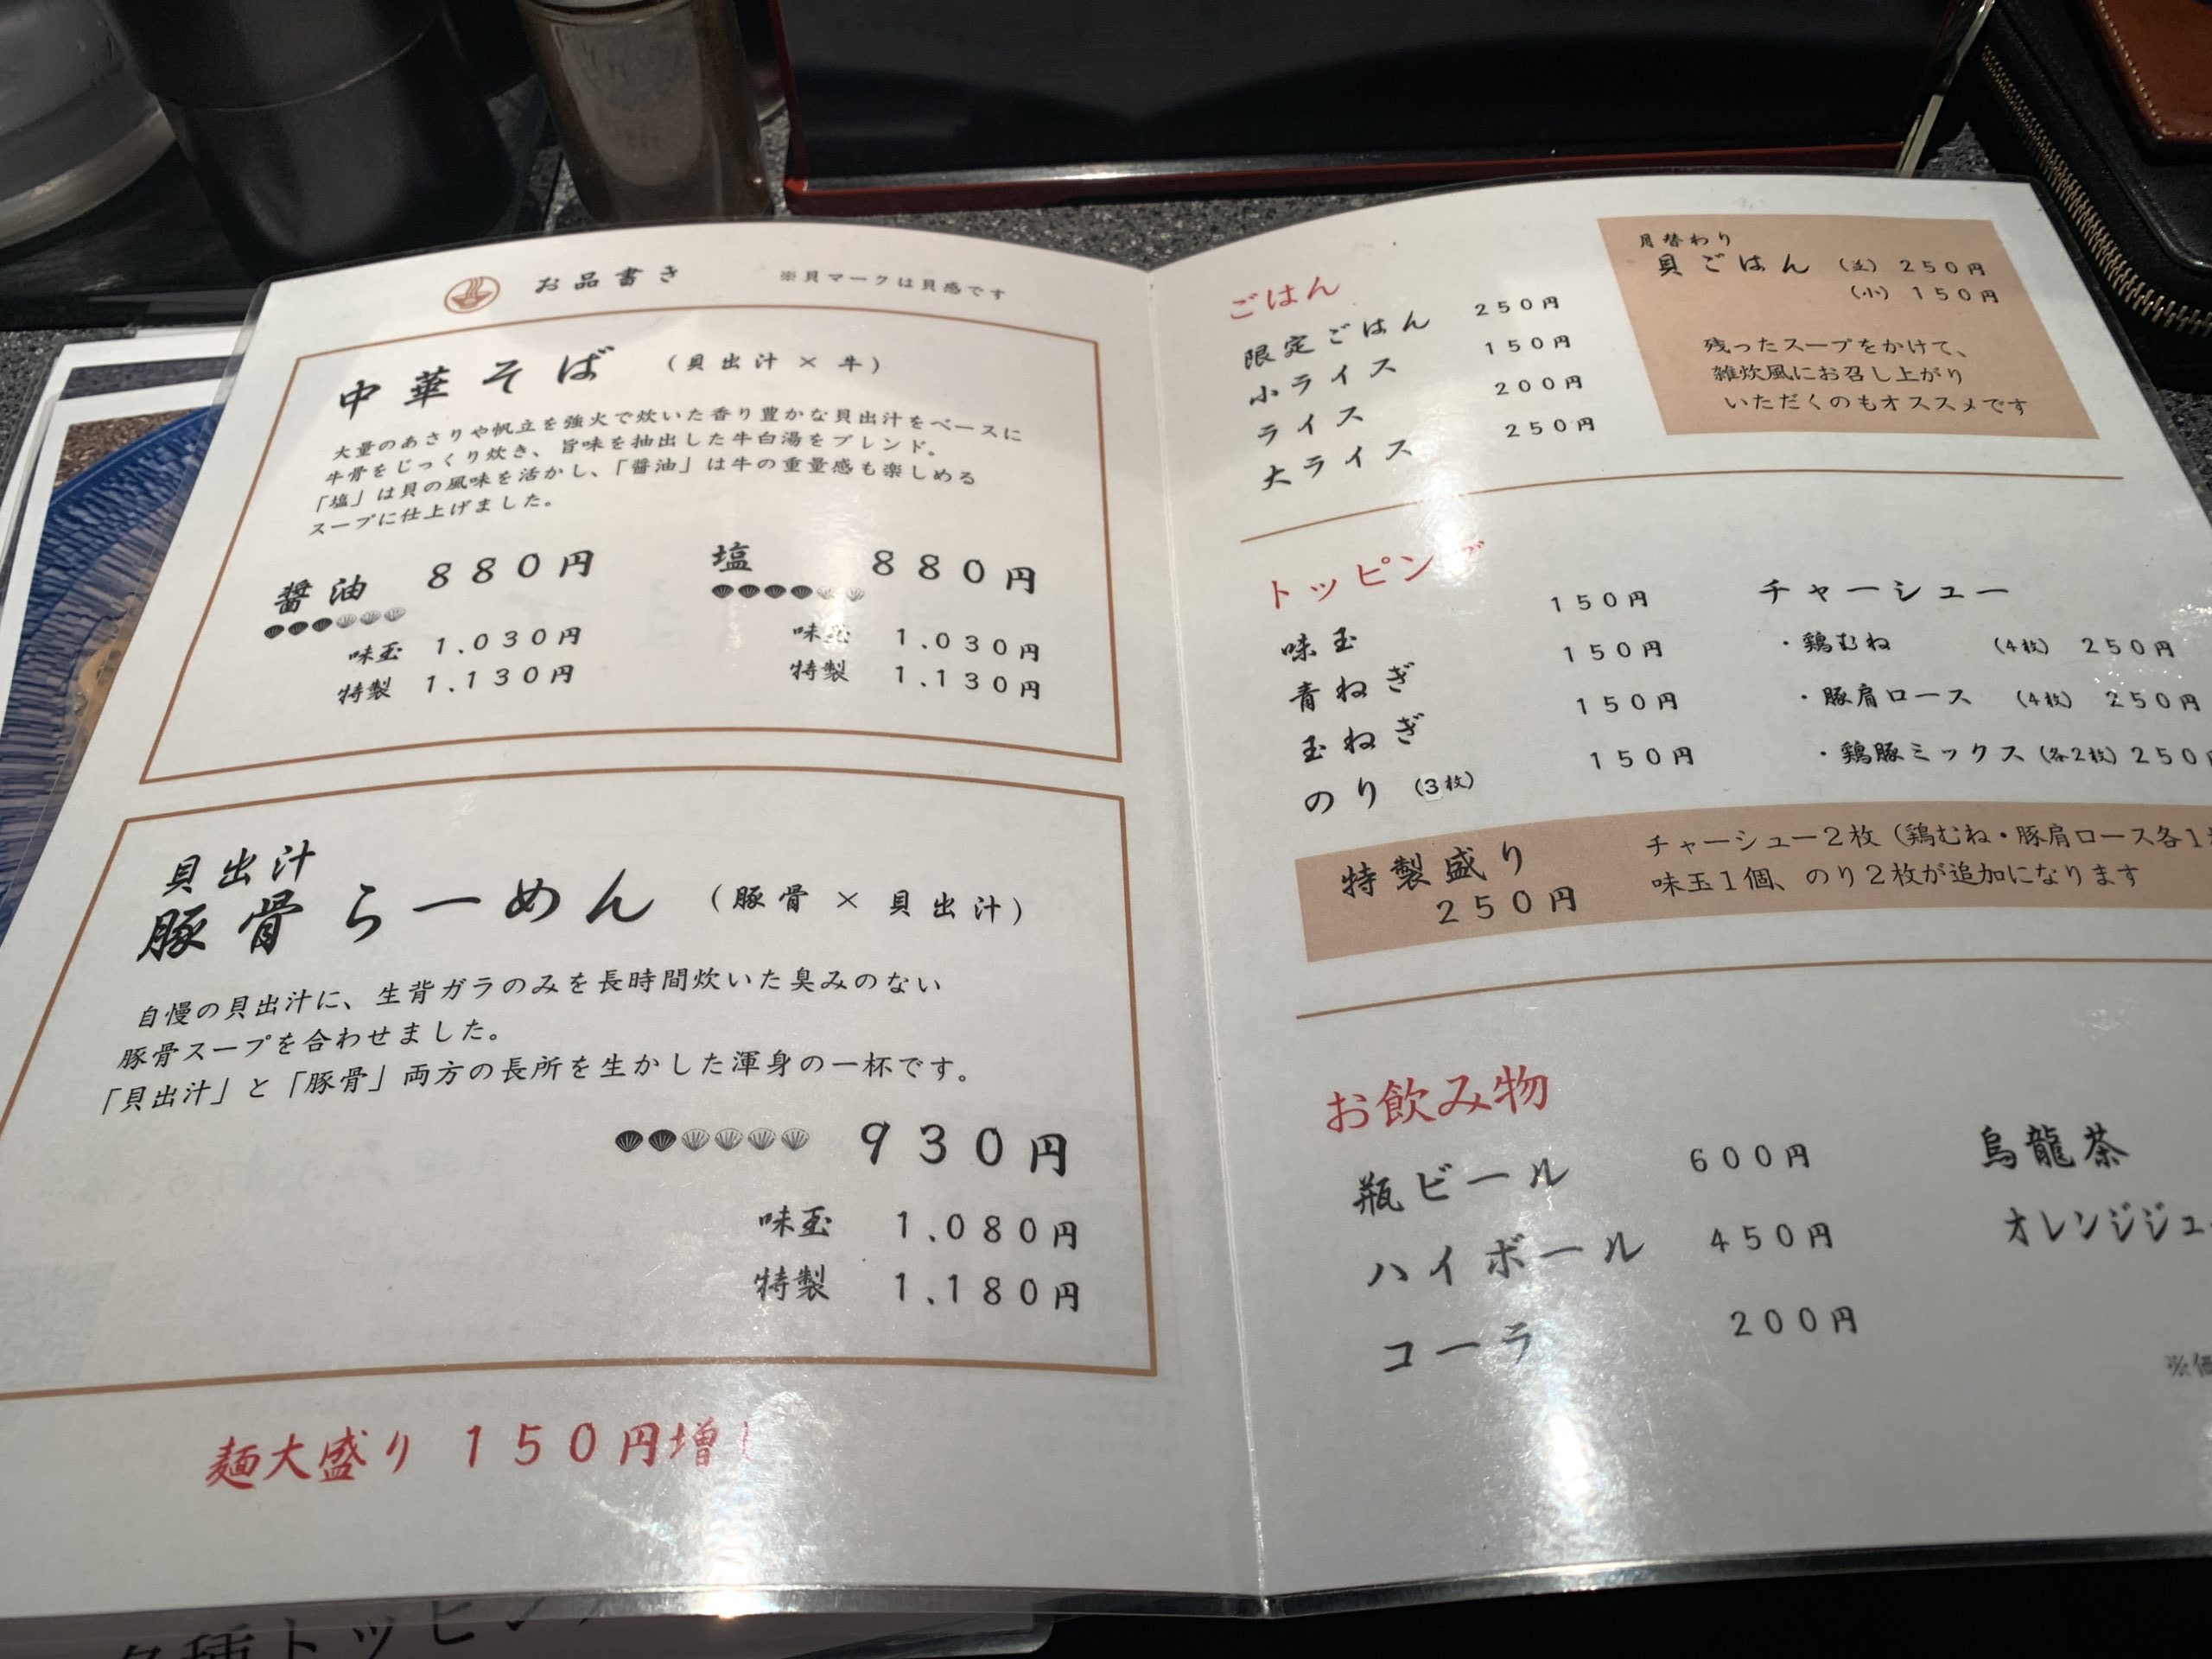 お品書き ※貝マークは貝感です
中華そば (貝出汁 × 牛)
大量のあさりや帆立を強火で炊いた香り豊かな貝出汁をベースに
牛骨をじっくり炊き、旨味を抽出した牛白湯をブレンド。
「塩」は貝の風味を活かし、「醤油」は牛の重量感も楽しめる
スープに仕上げました。
醤油 880円
味玉 1.030円
特製 1.130円
塩 880円
味玉 1.030円
特製 1.130円
貝出汁
豚骨らーめん (豚骨 × 貝出汁)
自慢の貝出汁に、生背ガラのみを長時間炊いた臭みのない
豚骨スープを合わせました。
「貝出汁」と「豚骨」両方の長所を生かした渾身の一杯です。
930円
味玉 1.080円
特製 1.180円
麺大盛り 150円増し
ごはん
限定ごはん 250円
小ライス 150円
ライス 200円
大ライス 250円
月替わり
貝ごはん (並) 250円
(小) 150円
残ったスープをかけて、
雑炊風にお召し上がり
いただくのもオススメです
トッピング
味玉 150円
青ねぎ 150円
玉ねぎ 150円
のり (3枚) 150円
チャーシュー
・鶏むね (4枚) 250円
・豚肩ロース (4枚) 250円
・鶏豚ミックス (各2枚) 250円
特製盛り
250円
チャーシュー2枚 (鶏むね・豚肩ロース各1
味玉1個、のり2枚が追加になります
お飲み物
瓶ビール 600円
ハイボール 450円
コーラ 200円
烏龍茶
オレンジジュ
各種トッピング